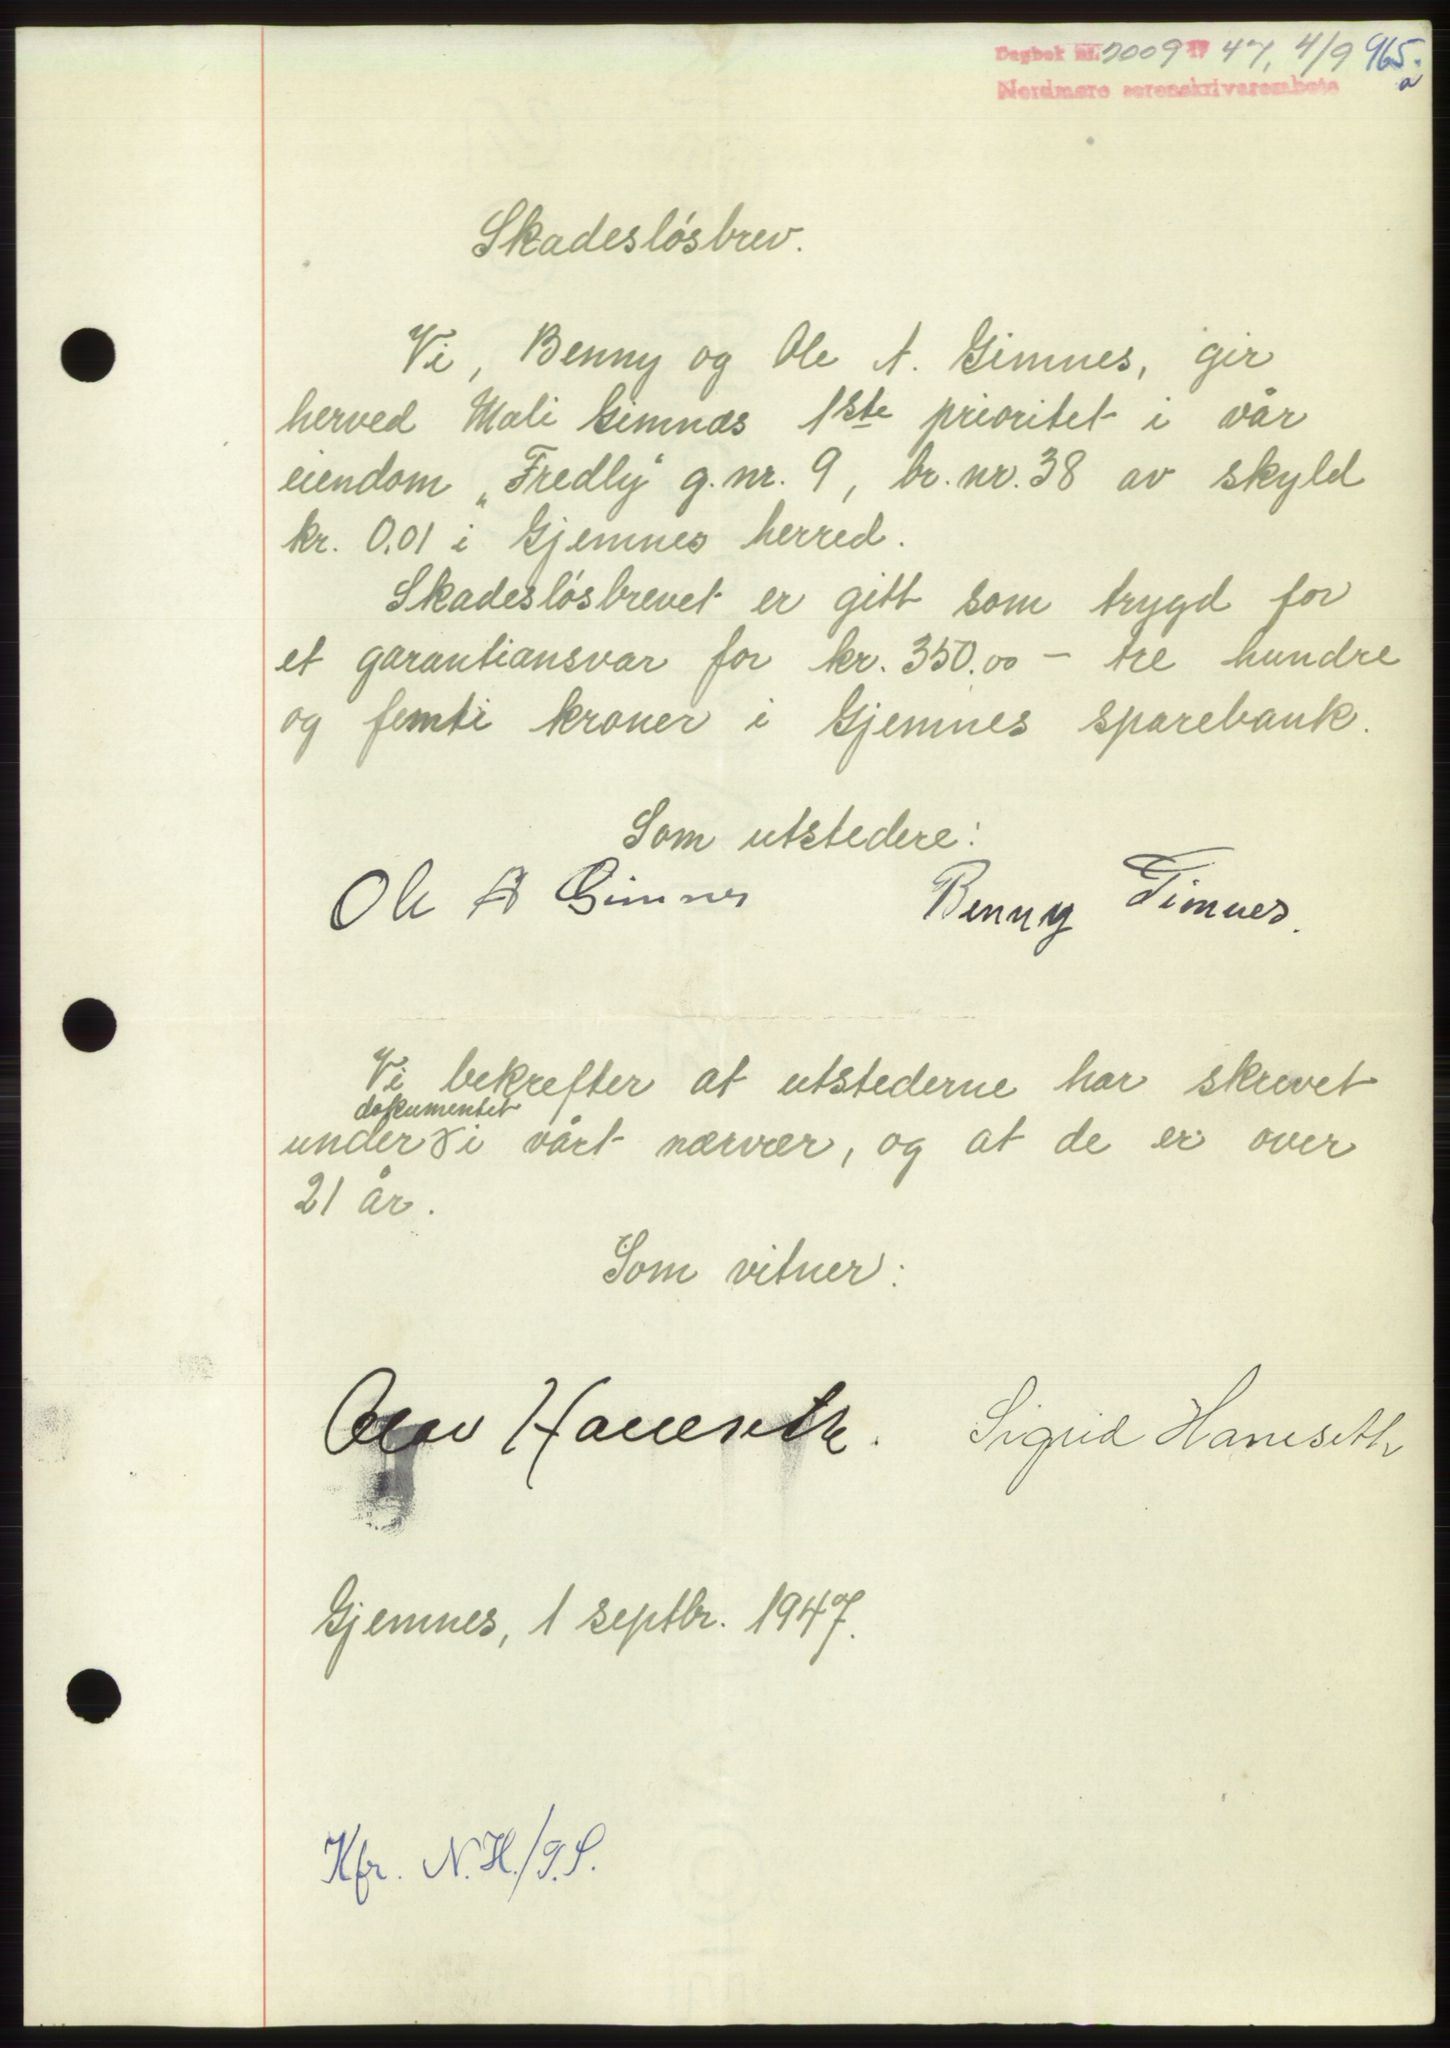 Dagbok nr. 2009 19 47, 4/9 965.
a
Nordmøre sorenskrivarembete
Skadesløsbrev.
Vi, Benny og Ole A. Gimnes, gir
herved Mali Gimnæs 1ste prioritet i vår
eiendom „Fredly“ g.nr. 9, br.nr. 38 av skyld
kr. 0,01 i Gjemnes herred.
Skadesløsbrevet er gitt som trygd for
et garantiansvar for kr. 350.00 – tre hundre
og femti kroner i Gjemnes sparebank.
Som utstedere:
Ole A Gimnes Benny Gimnes.
Vi bekrefter at utstederne har skrevet
dokumentet
under i vårt nærvær, og at de er over
21 år.
Som vitner:
Olav Haneseth. Sigrid Haneseth
Gjemnes, 1 septbr. 1947.
Kfr. N.H./G.S.